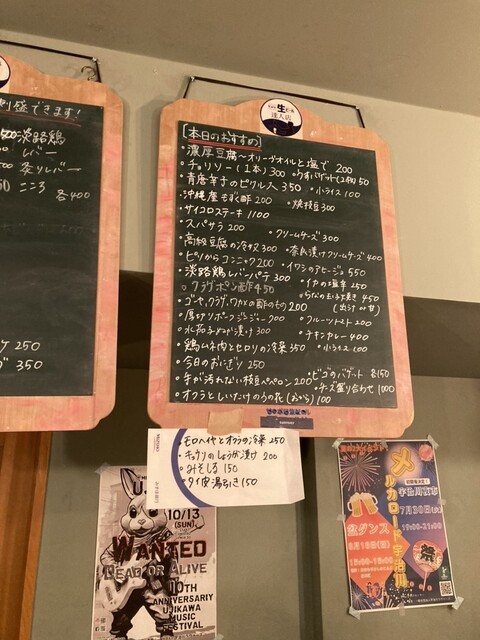 刺盛できます!
淡路鶏
レバー
炙りレバー
こころ
各400
250
350
生
達人店
[本日のおすすめ]
・濃厚豆腐〜オリーブオイルと塩で 200
・チョリソー(1本)300
・青唐辛子のピクルス 350 ・小ライス 100
・沖縄産もずく酢 200 ・焼枝豆 300
・サイコロステーキ 1100
・スパサラ 200 ・クリームチーズ 300
・高級豆腐の冷奴 300 ・奈良漬けクリームチーズ 400
・ピリからコンニャク 200 ・イワシのアヒージョ 550
・淡路鶏レバーパテ 300 ・イカの塩辛 250
・クラゲポン酢 450 玉子焼き 450
・ゴーヤ、クラゲ、ワカメの酢のもの 200 (出汁 or 甘)
・厚切りポークジンジャー 700 ・フルーツトマト 200
・水茄子 漬け 300 ・チキンカレー 400
・鶏ムネ肉とセロリの冷菜 350 ・小ライス 100
・今日のおにぎり 250
・手が汚れない枝豆ペペロン 200 バゲット 各150
・オクラとしいたけのうの花(おから)100 ・チーズ盛り合わせ 1000
SUNTORY
・モロヘイヤとオクラの冷菜 250
・キュウリのしょうが漬け 200
・みそしる 150
・タイ皮湯引き 150
10/13
(SUN)
WANTED
DEAD OR ALIVE
10TH
ANNIVERSARIY
UJIKAWA
MUSIC
FESTIVAL
メルカロード宇治川
宇治川夜市
7月30日
16:00-21:00
盆ダンス
8月18日(日)
祭